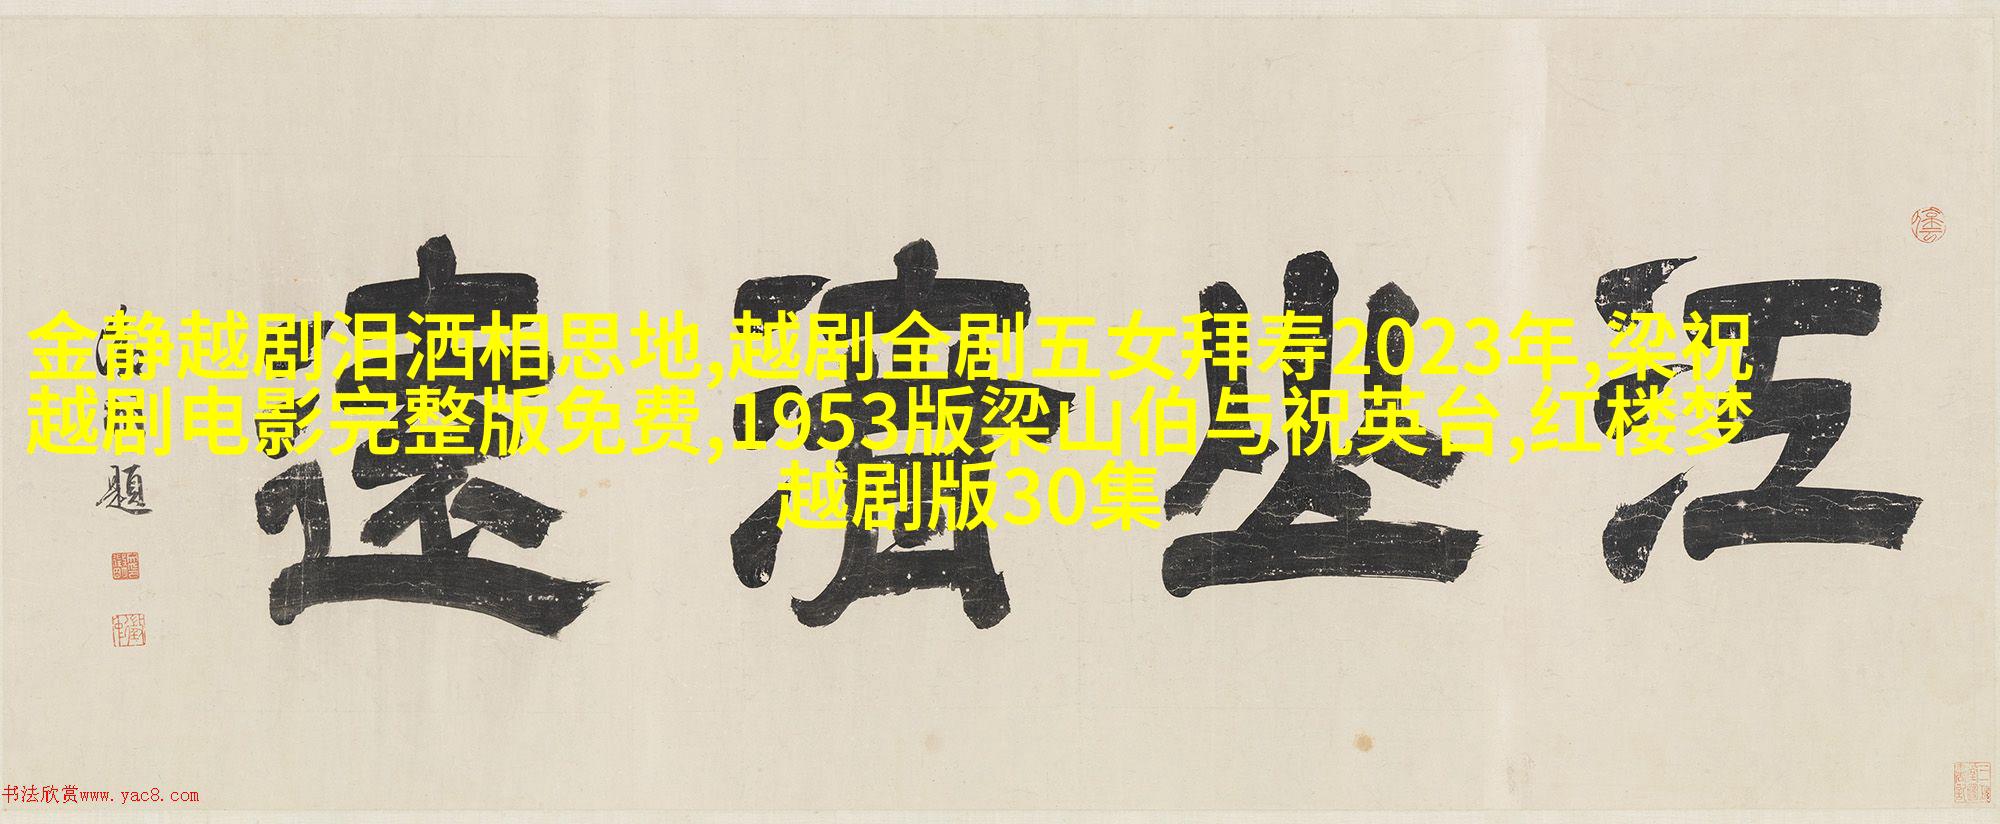 金静越剧泪洒相思地,越剧全剧五女拜寿2023年,梁祝
越剧电影完整版免费,1953版梁山伯与祝英台,红楼梦
越剧版30集
江
題
书法欣赏www.yac8.com